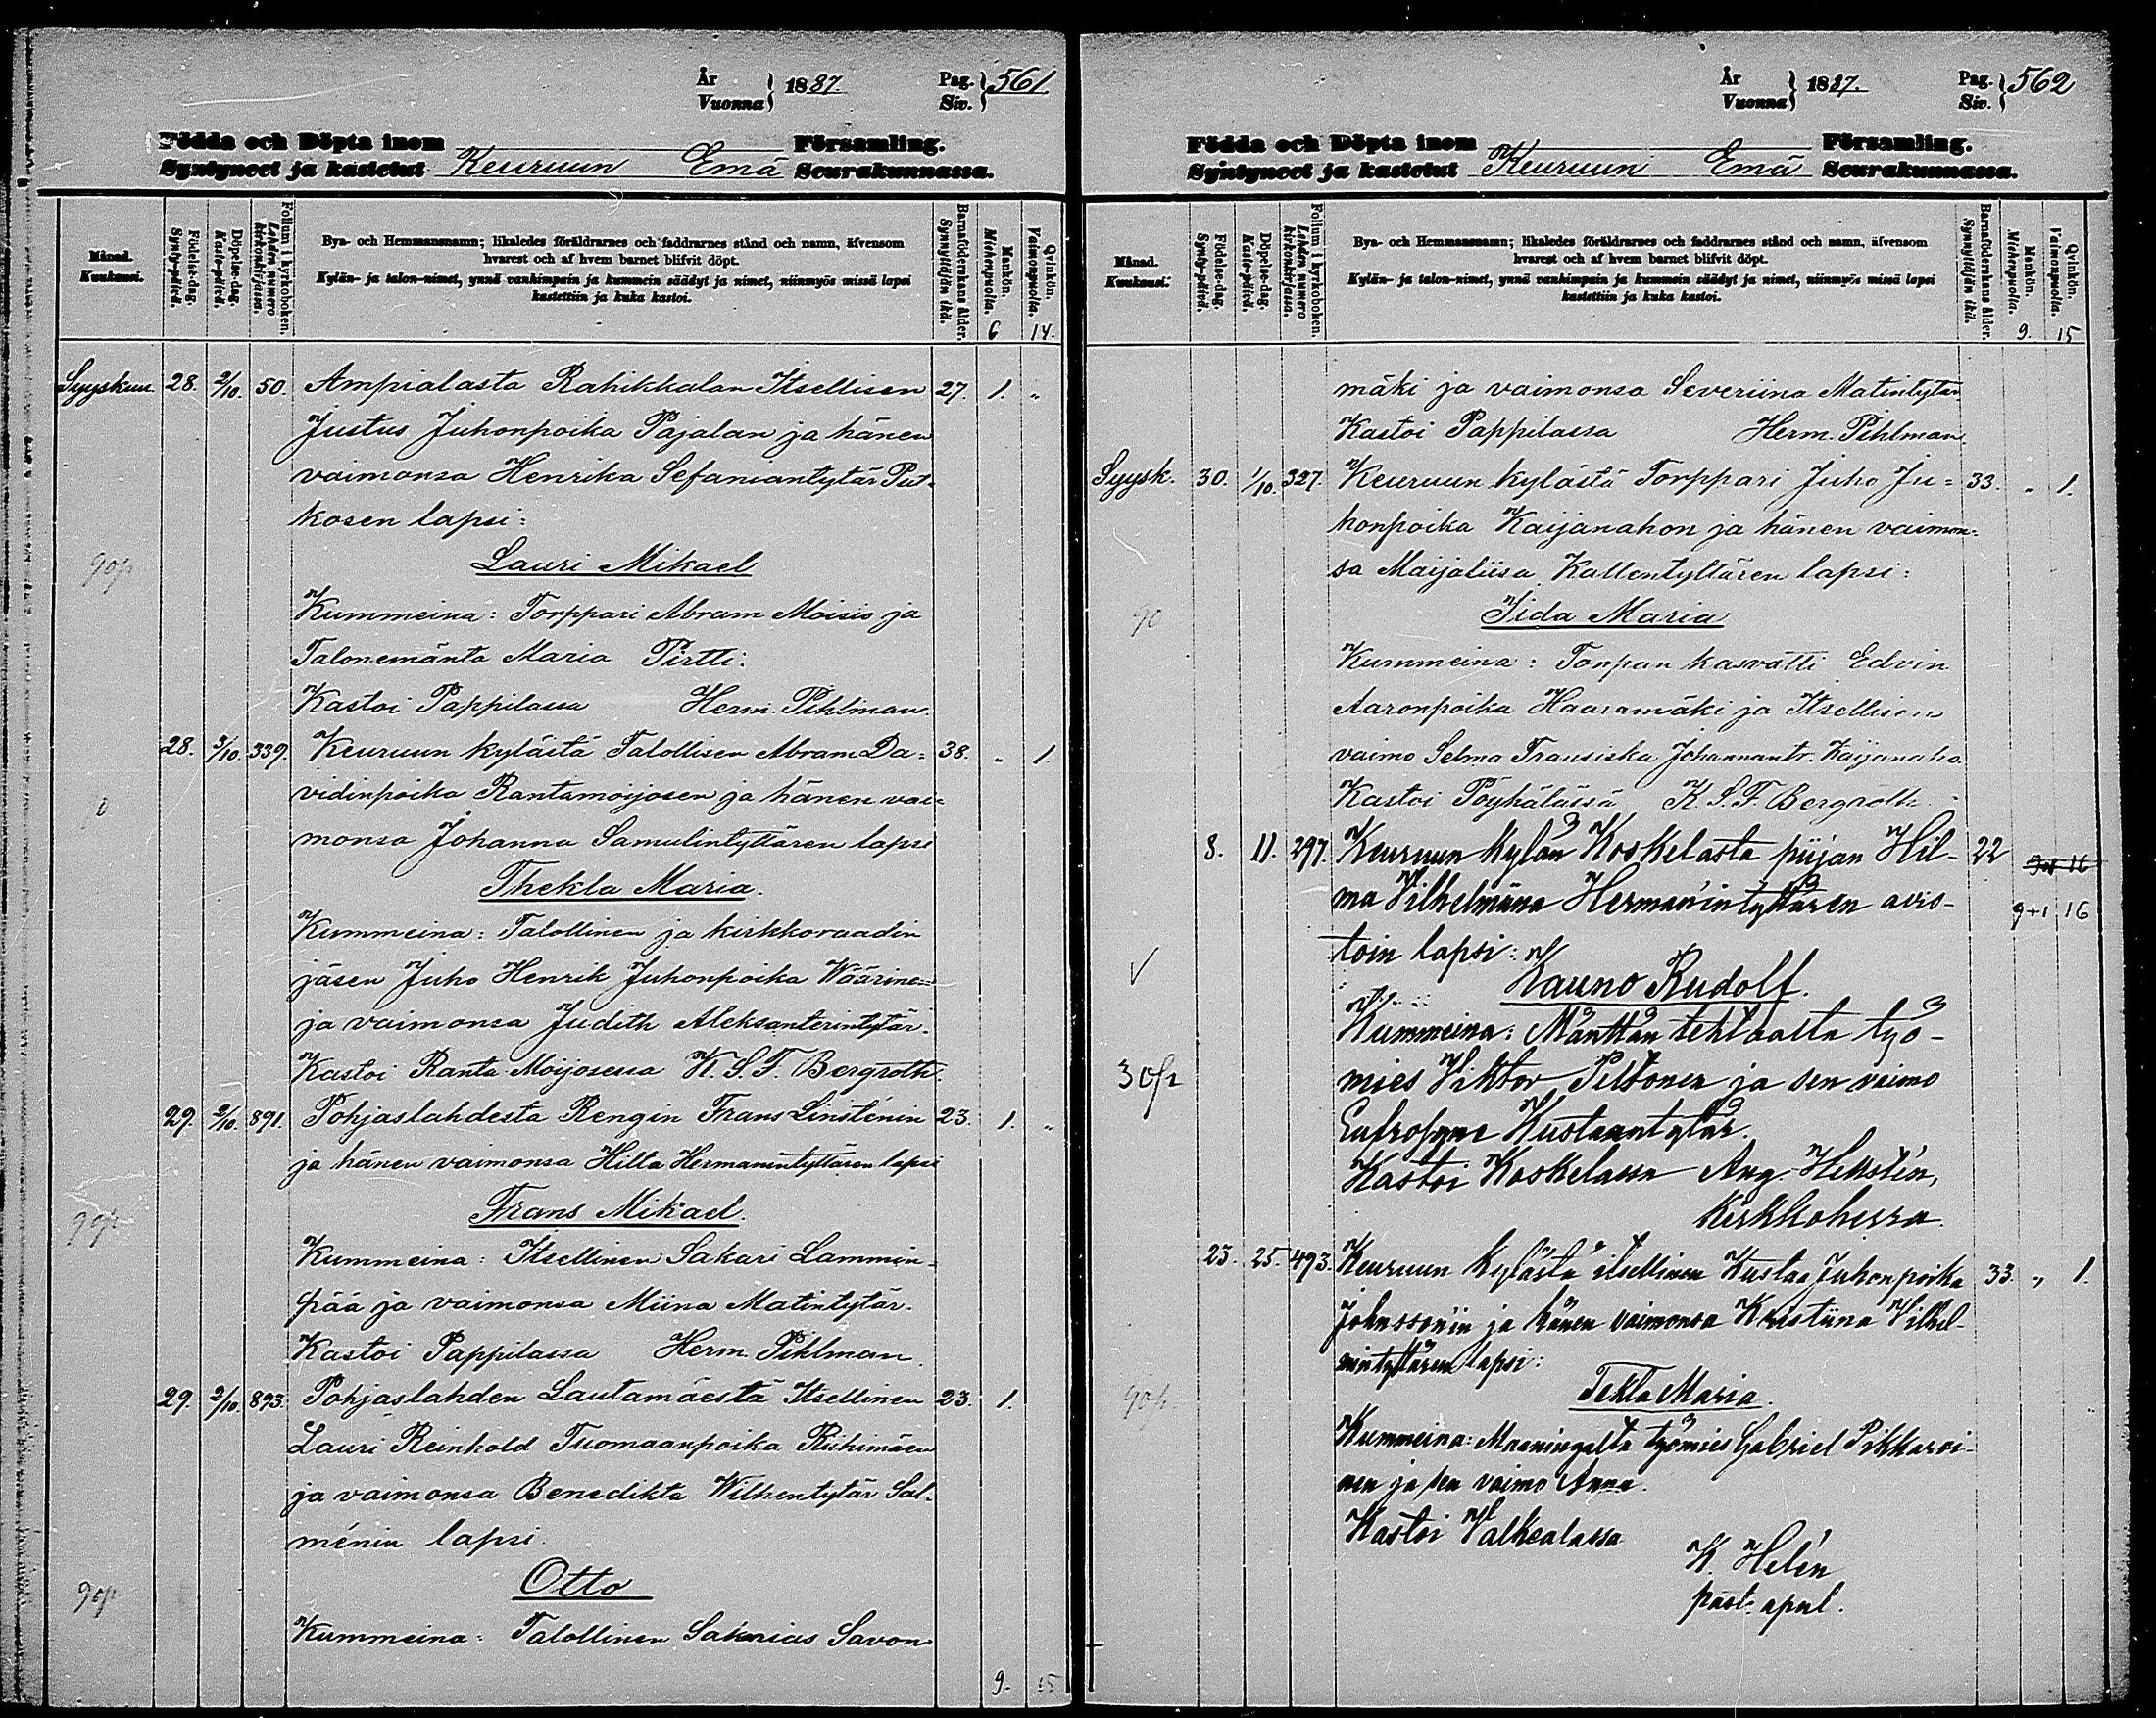 År
Vuonna } 1887.
Pag.
Siv. } 561.
Födda och Döpta inom Församling.
Syntyneet ja kastetut Keuruun Emä Seurakunnassa.
Månad.
Kuukausi.
Födelse-dag.
Synty-päivä.
Döpelse-dag.
Kaste-päivä.
Folium i kyrkoboken.
Lehden numero kirkonkirjassa.
Bya- och Hemmansnamn; likaledes föräldrarnes och faddrarnes stånd och namn, äfvensom
hvarest och af hvem barnet blifvit döpt.
Kylän- ja talon-nimet, ynnä vanhimpain ja kummein säädyt ja nimet, niinmyös missä lapsi
kastettiin ja kuka kastoi.
Barnaföderskans ålder.
Synnyttäjän ikä.
Mankön.
Miehenpuolia.
Qvinkön.
Vaimonpuolia.
6 14.
Syyskuu. 28. 2/10. 50. Ampialasta Rahikkalan Itsellisen 27. 1. "
Justus Juhonpoika Pajalan ja hänen
vaimonsa Henrika Sefaniantytär Put-
kosen lapsi:
Lauri Mikael
Kummeina: Torppari Abram Moisio ja
Talonemäntä Maria Pirtti.
Kastoi Pappilassa Herm. Pihlman.
28. 3/10. 339. Keuruun kylästä Talollisen Abram Da= 38. " 1.
vidinpoika Rantamoijosen ja hänen vai=
monsa Johanna Samulintyttären lapsi
Thekla Maria.
Kummeina: Talollinen ja kirkkoraadin
jäsen Juho Henrik Juhonpoika Wäärinen
ja vaimonsa Judith Aleksanterintytär.
Kastoi Ranta-Moijosessa K. S. F. Bergroth.
29. 2/10. 891. Pohjaslahdesta Rengin Frans Linsténin 23. 1. "
ja hänen vaimonsa Hilta Hermanintyttären lapsi
Frans Mikael.
Kummeina: Itsellinen Sakari Lammin-
pää ja vaimonsa Miina Matintytär.
Kastoi Pappilassa Herm. Pihlman.
29. 2/10. 893. Pohjaslahden Lautamäestä Itsellinen 23. 1.
Lauri Reinhold Tuomaanpoika Riihimäen
ja vaimonsa Benedikta Wilhentytär Sal-
ménin lapsi.
Otto
Kummeina: Talollinen Sakarias Savon-
9. 15
År
Vuonna } 1887.
Pag.
Siv. } 562
Födda och Döpta inom Församling.
Syntyneet ja kastetut Keuruun Emä Seurakunnassa.
Månad.
Kuukausi.
Födelse-dag.
Synty-päivä.
Döpelse-dag.
Kaste-päivä.
Folium i kyrkoboken.
Lehden numero kirkonkirjassa.
Bya- och Hemmansnamn; likaledes föräldrarnes och faddrarnes stånd och namn, äfvensom
hvarest och af hvem barnet blifvit döpt.
Kylän- ja talon-nimet, ynnä vanhimpain ja kummein säädyt ja nimet, niinmyös missä lapsi
kastettiin ja kuka kastoi.
Barnaföderskans ålder.
Synnyttäjän ikä.
Mankön.
Miehenpuolia.
Qvinkön.
Vaimonpuolia.
9. 15
mäki ja vaimonsa Severiina Matintytär
Kastoi Pappilassa Herm. Pihlman
Syysk. 30. 1/10. 327. Keuruun kylästä Torppari Juho Ju= 33. " 1.
honpoika Kaijanahon ja hänen vaimon=
sa Maijaliisa Kallentyttären lapsi:
Iida Maria
Kummeina: Torpan kasvatti Edvin
Aaronpoika Haaramäki ja Itsellisen
vaimo Selma Fransiska Johannantr. Kaijanaho.
Kastoi Pöyhälässä K. S. F. Bergroth.
8. 11. 297. Keuruun kylän Koskelasta piijan Hil- 22
ma Vilhelmiina Herman'intyttären avio- 9+1 16
toin lapsi:
Kauno Rudolf.
Kummeina: Mänttän tehtaalta työ-
30p
mies Viktor Peltonen ja sen vaimo
Eufrosyne Kustaantytär.
Kastoi Koskelassa Aug. Hellstén,
Kirkkoherra.
25. 25. 493. Keuruun kylästä itsellinen Kustaa Juhonpoika 33. " 1.
Johnsson'in ja hänen vaimonsa Kristiina Vilhel-
mintyttären lapsi:
Tekla Maria.
Kummeina: Maaningalta työmies Gabriel Pikkaroi-
nen ja sen vaimo Anna.
Kastoi Valkealassa
K. Helén
past. apul.